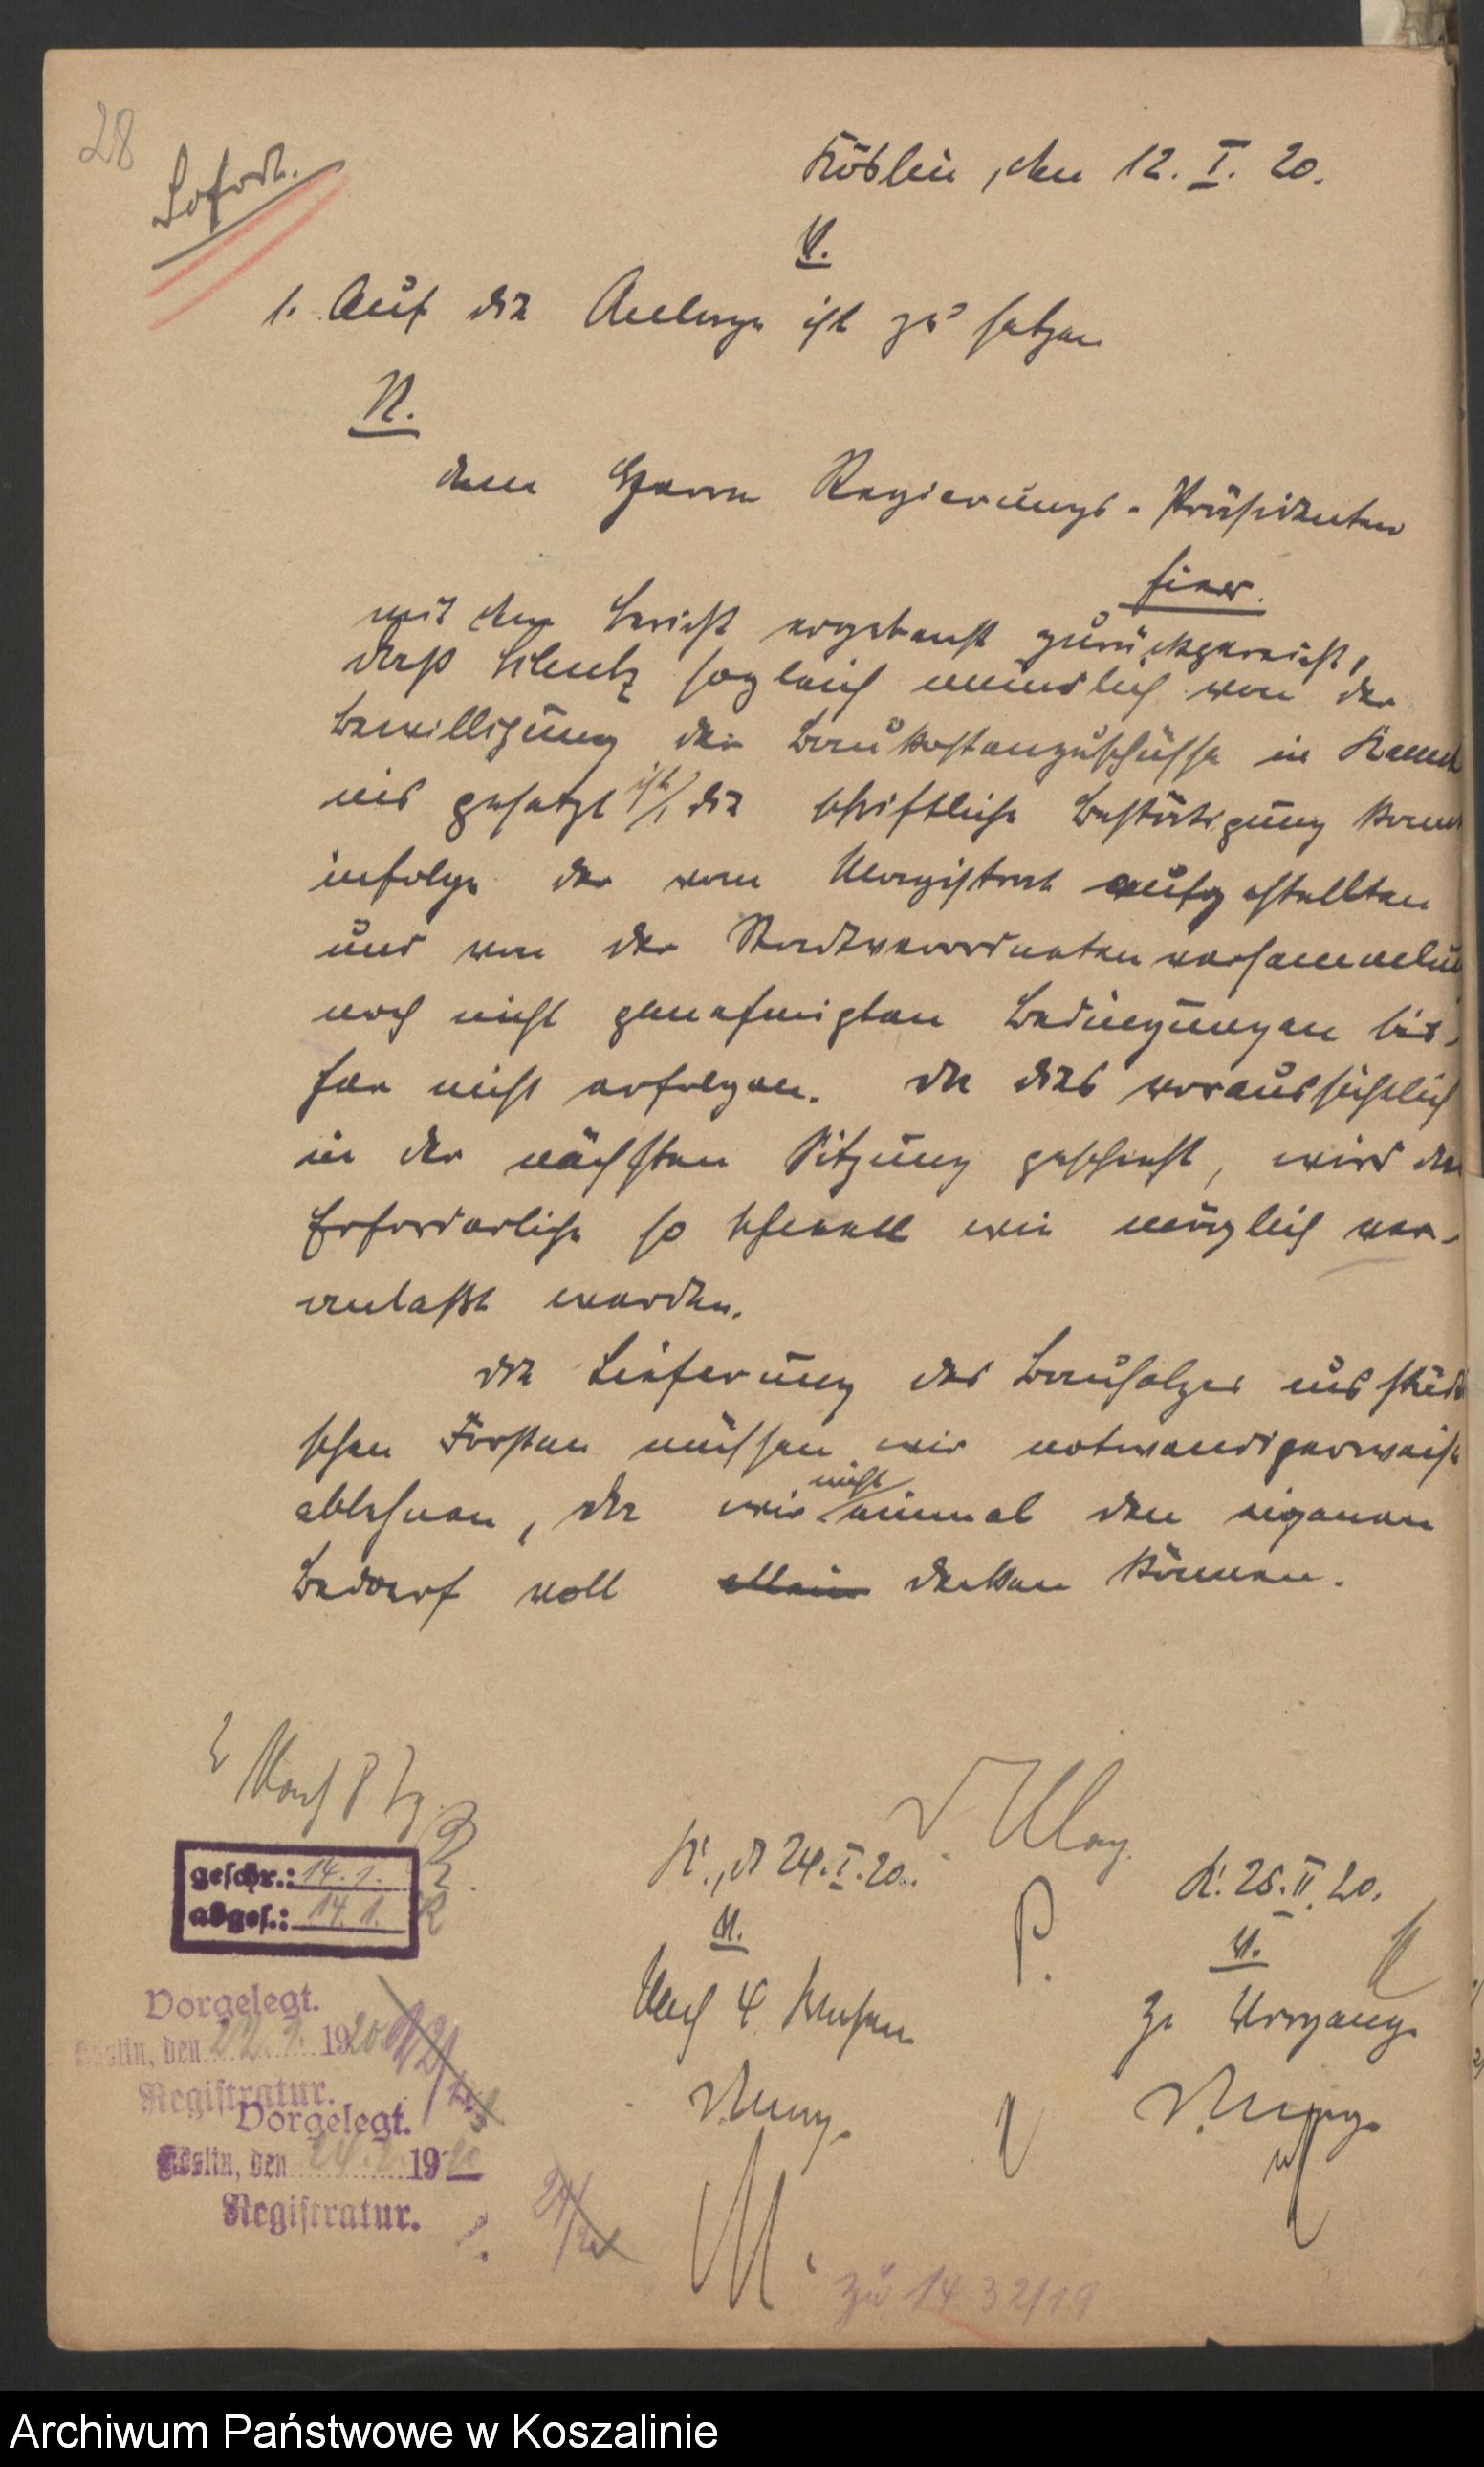 28
Sofort.
Köslin, den 12. I. 20.
V.
1. Auf die Anlage ist zu setzen
U.
dem Herrn Regierungs-Präsidenten
hier.
mit dem Bericht ergebenst zurückgereicht,
daß sogleich mündlich von der
Bewilligung der Baukostenzuschüsse in Kennt
nis gesetzt ist, die schriftliche Bestätigung konnt
infolge der vom Magistrat aufgestellten
und von der Stadtverordnetenversammlun
noch nicht genehmigten Bedingungen bis-
her nicht erfolgen. Da dies voraussichtlich
in der nächsten Sitzung geschieht, wird das
Erforderliche so schnell wie möglich ver-
anlaßt werden.
Die Lieferung des Bauholzes aus städt
schen Forsten müssen wir notwendigerweise
ablehnen, da wir nicht einmal den eigenen
Bedarf voll allein decken können.
2 Nach 8 Tg.
D Mag.
geschr.: 14.1.
abges.: 14.1.
K., d 24. I. 20.
V.
Nach 4 Wochen
D. Mag.
P.
K. 25. II. 20.
V.
Zu Vorgang
D. Mag.
Vorgelegt.
Köslin, den 22. 1. 1920
Registratur.
Vorgelegt.
Köslin, den 24. 2. 1920
Registratur.
zu 1432/19
Archiwum Państwowe w Koszalinie